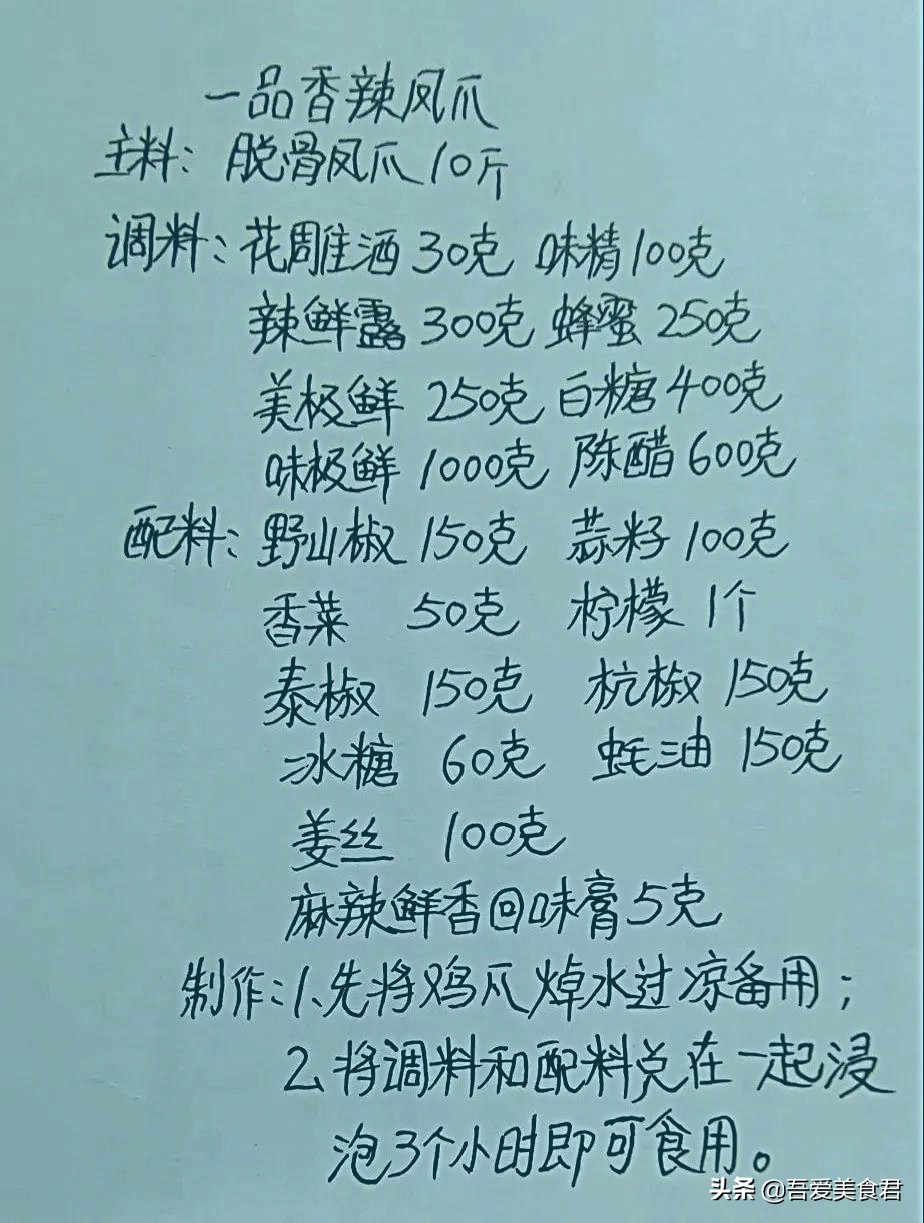 一品香辣凤爪
主料：脱骨凤爪10斤
调料：花雕酒30克 味精100克
辣鲜露300克 蜂蜜250克
美极鲜 250克 白糖400克
味极鲜 1000克 陈醋600克
配料：野山椒 150克 蒜籽100克
香菜 50克 柠檬 1个
泰椒 150克 杭椒 150克
冰糖 60克 蚝油 150克
姜丝 100克
麻辣鲜香回味膏5克
制作：1、先将鸡爪焯水过凉备用；
2、将调料和配料兑在一起浸
泡3个小时即可食用。
头条 @吾爱美食君